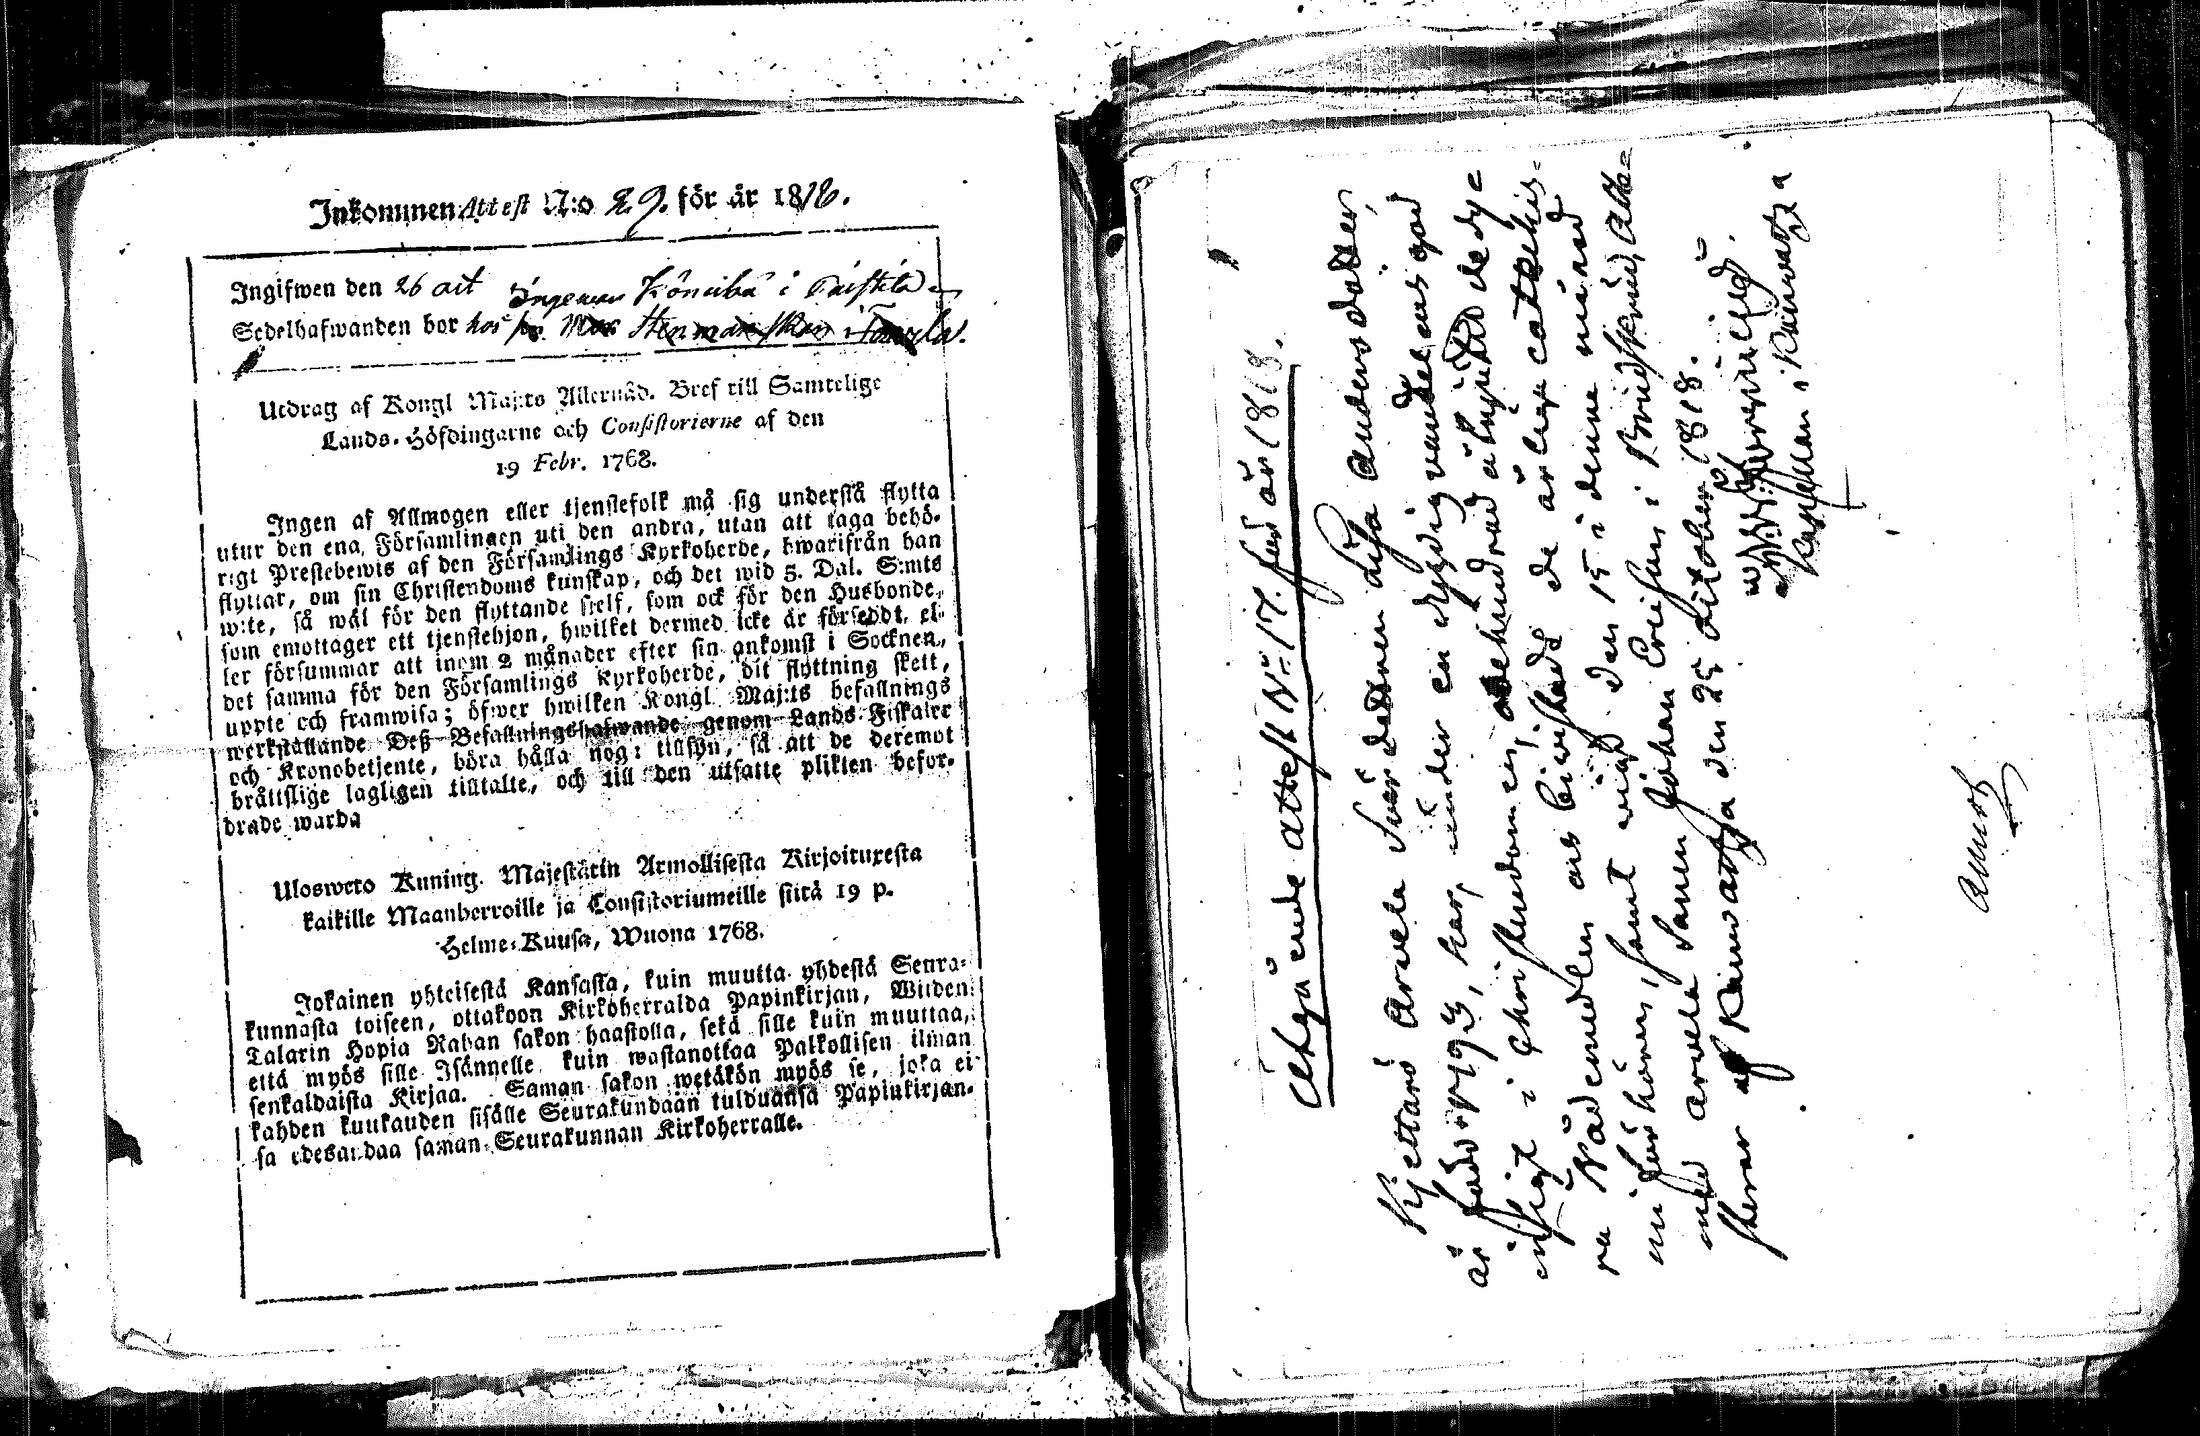 Inkommen Attest N:o 29. för år 1818.
Ingifwen den 26 oct Ingeman i
Sedelhafwanden bor hos
Utdrag af Kongl Maj:ts Allernåd. Bref till Samtelige
Lands-Höfdingarne och Consistorierne af den
19 Febr. 1768.
Ingen af Allmogen eller tjenstefolk må sig understå flytta
utur den ena Församlingen uti den andra, utan att taga behö-
rigt Prestebewis af den Församlings Kyrkoherde, hwarifrån han
flyttar, om sin Christendoms kunskap, och det wid 5. Dal. S:mts
wite, så wäl för den flyttande sielf, som ock för den Husbonde,
som emottager ett tjenstehjon, hwilket dermed icke är försedt, el-
ler försummar att inom 2 månader efter sin ankomst i Socknen,
det samma för den Församlings Kyrkoherde, dit flyttning skett,
uppte och framwisa; öfwer hwilken Kongl Maj:ts befallnings
werkställande Deß Befallningshafwande genom Lands-Fiskaler
och Kronobetjente, böra hålla noga tillsyn, så att de deremot
bråttslige lagligen tilltalte, och till den utsatte plikten befor-
drade warda
Ulosweto Kuning. Majestätin Armollisesta Kirjoituxesta
kaikille Maanherroille ja Consistoriumeille siitä 19 p.
Helme-Kuusa, Wuona 1768.
Jokainen yhteisestä Kansasta, kuin muutta yhdestä Seura-
kunnasta toiseen, ottakoon Kirkoherralda Papinkirjan, Wiiden
Talarin Hopia Rahan sakon haastolla, sekä sille kuin muuttaa,
että myös sille Isännelle kuin wastanottaa Palkollisen ilman
senkaldaista Kirjaa. Saman sakon wetäkön myös se, joka ei
kahden kuukauden sisälle Seurakundaan tulduansa Papinkirjan-
sa edesandaa saman Seurakunnan Kirkoherralle.
Utgående attest N:o 17. för år 1818.
Arvela Sonedottren Lisa Andersdotter,
är född 1793, har, under en dygdig vandel en god
insigt i Christendomen, obehindrad åtnjutit de dy-
ra Nådemedlen och bivistat de årliga catechis-
mi förhören, samt vigd den 15 i denne månad
med Arvela Sonen Johan Ericson i attesteras
af den 25 October 1818.
Kapellan i